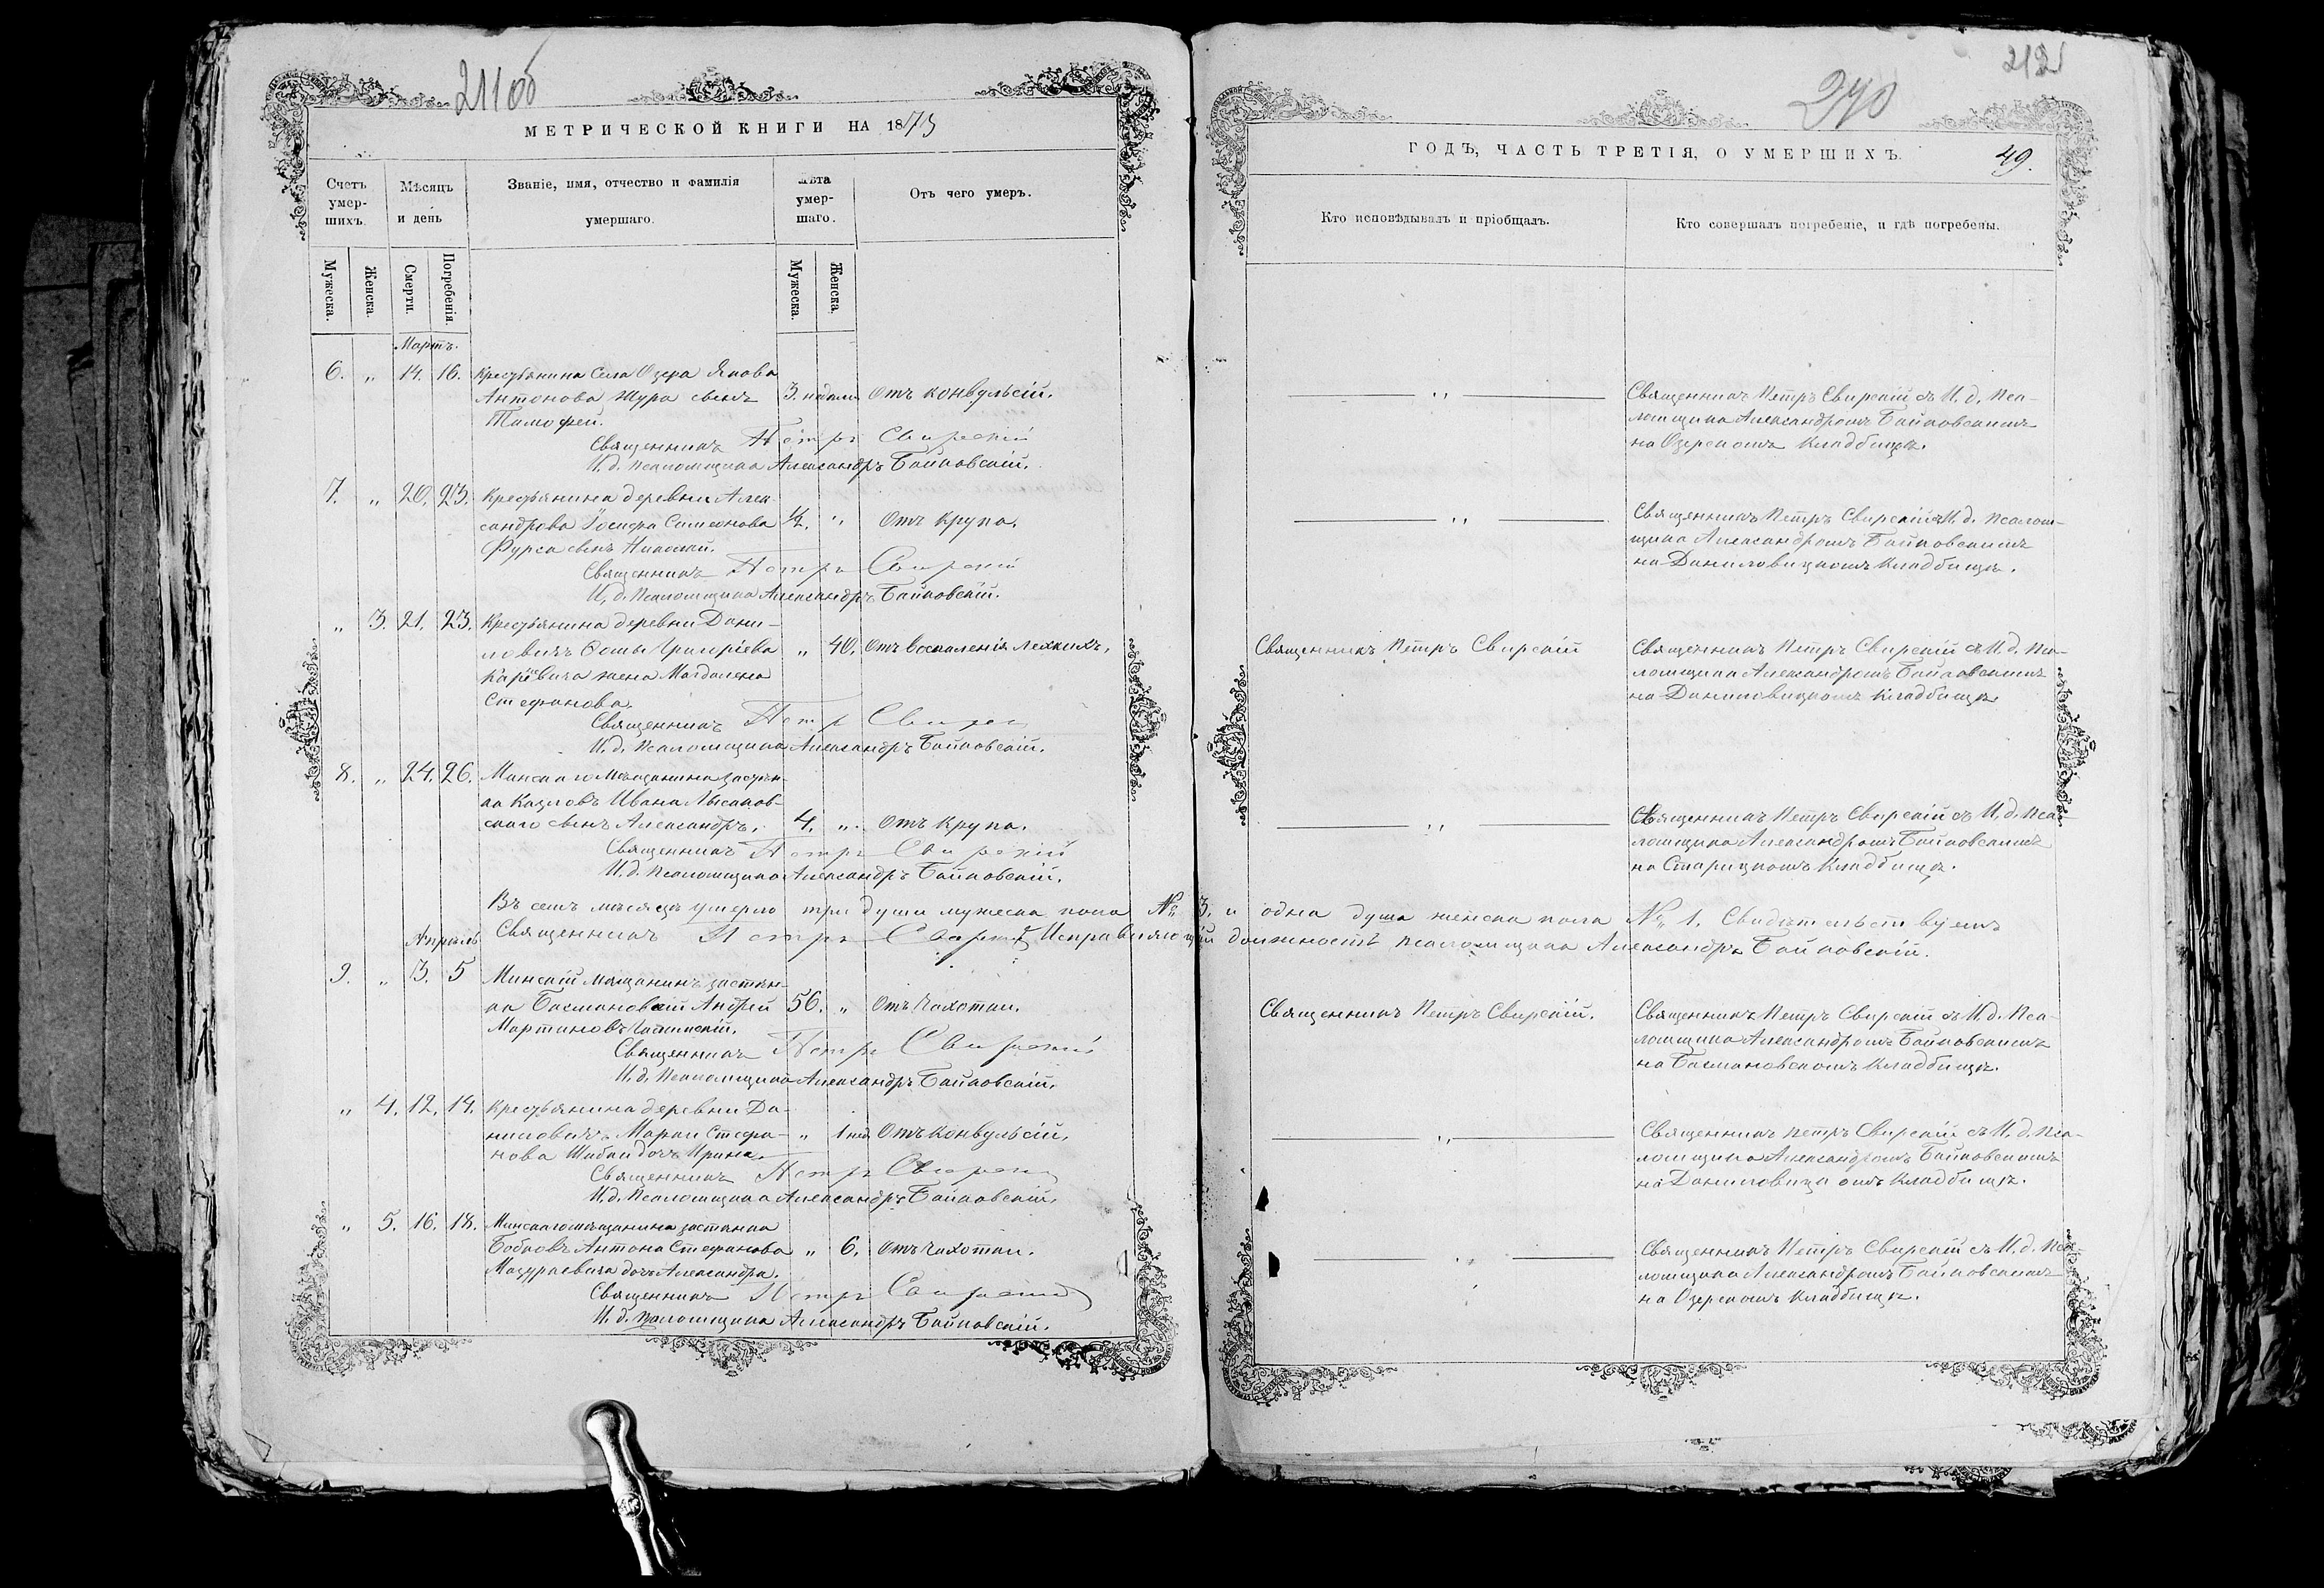 211об
МЕТРИЧЕСКОЙ КНИГИ НА 1873
Счетъ умер-шихъ.
Мѣсяцъ и день
Званіе, имя, отчество и фамилія умершаго.
Лѣта умер-шаго.
Отъ чего умеръ.
Мужеска.
Женска.
Смерти.
Погребенія.
Мужеска.
Женска.
Мартъ.
6. „ 14. 16. Крестьянина Села Озера Якова
Антонова Щура сынъ 3. недели Отъ конвульсій.
Тимофей.
Священникъ Петръ Свирскій
И. д. псаломщика Александръ Байковскій.
7. „ 20. 23. Крестьянина деревни Алек-
сандрова Іосифа Симеонова ½. „ Отъ крупа.
Фурса сынъ Николай.
Священникъ Петръ Свирскій
И. д. Псаломщика Александръ Байковскій.
„ 3. 21. 23. Крестьянина деревни Дани-
ловичъ Фомы Григоріева „ 40. Отъ воспаленія легкихъ.
жена Магдалена
Стефанова.
Священникъ Петръ Свирскій
И. д. Псаломщика Александръ Байковскій.
8. „ 24. 26. Минскаго Мѣщанина застѣн-
ка Казловъ Ивана Лысаков-
скаго сынъ Александръ. 4. „ Отъ крупа.
Священникъ Петръ Свирскій
И. д. Псаломщика Александръ Байковскій.
Въ семъ мѣсяцѣ умерло три души мужеска пола № 3. и одна душа женска пола № 1. Свидѣтельствуемъ
Священникъ Петръ Свирскій Исправляющій должность псаломщика Александръ Байковскій.
Апрѣль
9. „ 3. 5 Минскій мѣщанинъ застѣн-
ка Басмановскій Андрей 56. „ Отъ чахотки.
Мартиновъ
Священникъ Петръ Свирскій
И. д. Псаломщика Александръ Байковскій.
„ 4. 12. 14. Крестьянина деревни Да-
ниловичъ Марки Стефа- „ 1 нед. Отъ Конвульсій.
нова Шибки дочь Ирина.
Священникъ Петръ Свирскій
И. д. Псаломщика Александръ Байковскій.
„ 5. 16. 18. Минскаго мѣщанина застѣнка
Бобковъ Антона Стефанова „ 6. Отъ чахотки.
Мацкевича дочь Александра.
Священникъ Петръ Свирскій
И. д. Псаломщика Александръ Байковскій.
212
270
ГОДЪ, ЧАСТЬ ТРЕТІЯ, О УМЕРШИХЪ.
49.
Кто исповѣдывалъ и пріобщалъ.
Кто совершалъ погребеніе, и гдѣ погребены.
„ Священникъ Петръ Свирскій съ И. д. Пса-
ломщика Александромъ Байковскимъ
на Озерскомъ Кладбищѣ.
„ Священникъ Петръ Свирскій съ И. д. Псалом-
щика Александромъ Байковскимъ
на Даниловицкомъ Кладбищѣ.
Священникъ Петръ Свирскій Священникъ Петръ Свирскій съ И. д. Пса-
ломщика Александромъ Байковскимъ
на Даниловицкомъ Кладбищѣ
„ Священникъ Петръ Свирскій съ И. д. Пса-
ломщика Александромъ Байковскимъ
на Старицкомъ Кладбищѣ.
Священникъ Петръ Свирскій. Священникъ Петръ Свирскій съ И. д. Пса-
ломщика Александромъ Байковскимъ
на Басмановскомъ Кладбищѣ.
„ Священникъ Петръ Свирскій съ И. д. Пса-
ломщика Александромъ Байковскимъ
на Даниловицкомъ Кладбищѣ.
„ Священникъ Петръ Свирскій съ И. д. Пса-
ломщика Александромъ Байковскимъ
на Озерскомъ Кладбищѣ.